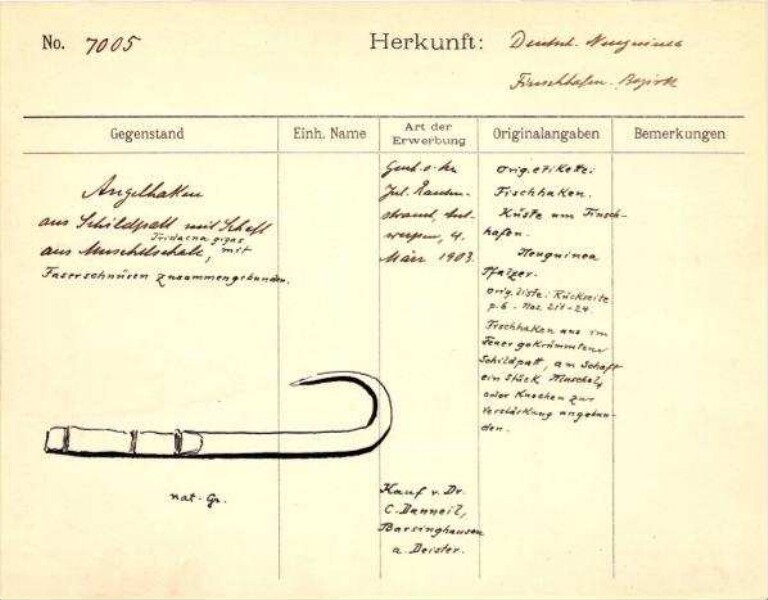 No. 7005
Herkunft: Deutsch. Neuguinea
Finschhafen. Bezirk
Gegenstand
Einh. Name
Art der Erwerbung
Originalangaben
Bemerkungen
Angelhaken
aus Schildpatt mit Schaft
Tridacna gigas
aus Muschelschale, mit
Faserschnüren zusammengebunden.
Jul.
werpen, 4.
März 1903.
Kauf v. Dr.
C. Danneil,
Barsinghausen
a. Deister.
Orig.etikette:
Fischhaken.
Küste um Finsch-
hafen.
Neuguinea
Pfalzer.
Orig. liste: Rückseite
p. 6. Nos 211-24.
Fischhaken aus im
Feuer gekrümmten
Schildpatt, am Schaft
ein Stück Muschel,
oder Knochen zur
Verstärkung angebun-
den.
nat. Gr.